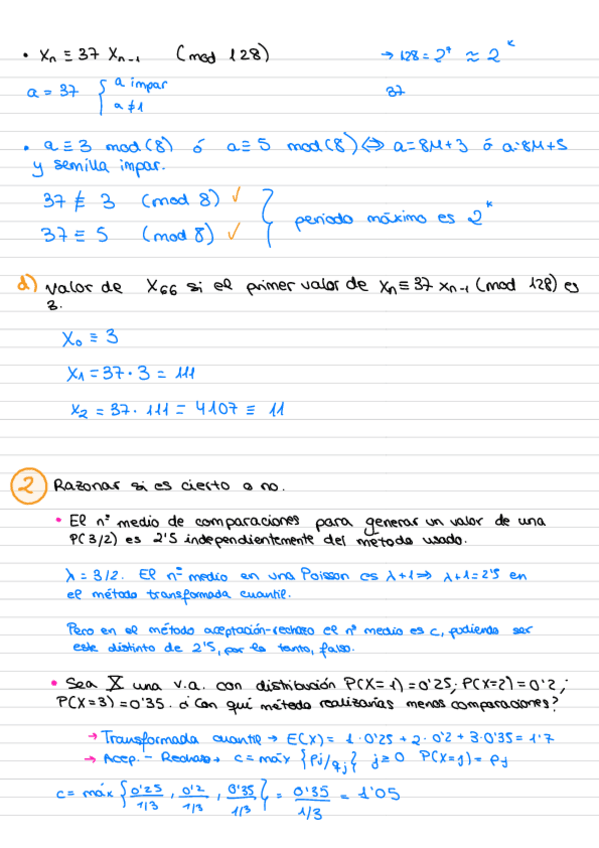 • Xn ≡ 37 Xn-1 (mod 128) → 128 = 2⁷ ≈ 2^k
a = 37 { a impar 37
a ≠ 1
• a ≡ 3 mod(8) ó a ≡ 5 mod(8) ⟺ a = 8M+3 ó a=8M+5
y semilla impar.
37 ≢ 3 (mod 8) ✓
37 ≡ 5 (mod 8) ✓ } periodo máximo es 2^k
d) valor de X66 si el primer valor de Xn ≡ 37 Xn-1 (mod 128) es
3.
X0 ≡ 3
X1 = 37 · 3 = 111
X2 = 37 · 111 = 4107 ≡ 11
2 Razonar si es cierto o no.
• El nº medio de comparaciones para generar un valor de una
P(3/2) es 2'5 independientemente del método usado.
λ = 3/2. El nº medio en una Poisson es λ+1 ⟹ λ+1 = 2'5 en
el método transformada cuantil.
Pero en el método aceptación-rechazo el nº medio es c, pudiendo ser
este distinto de 2'5, por lo tanto, falso.
• Sea X una v.a. con distribución P(X=1) = 0'25; P(X=2) = 0'2;
P(X=3) = 0'35. ¿Con qué método realizarías menos comparaciones?
→ Transformada cuantil → E(X) = 1·0'25 + 2·0'2 + 3·0'35 = 1'7
→ Acep. - Rechazo → c = máx {Pj/qj} j ≥ 0 P(X=j) = Pj
c = máx { 0'25/1/3 , 0'2/1/3 , 0'35/1/3 } = 0'35/1/3 = 1'05